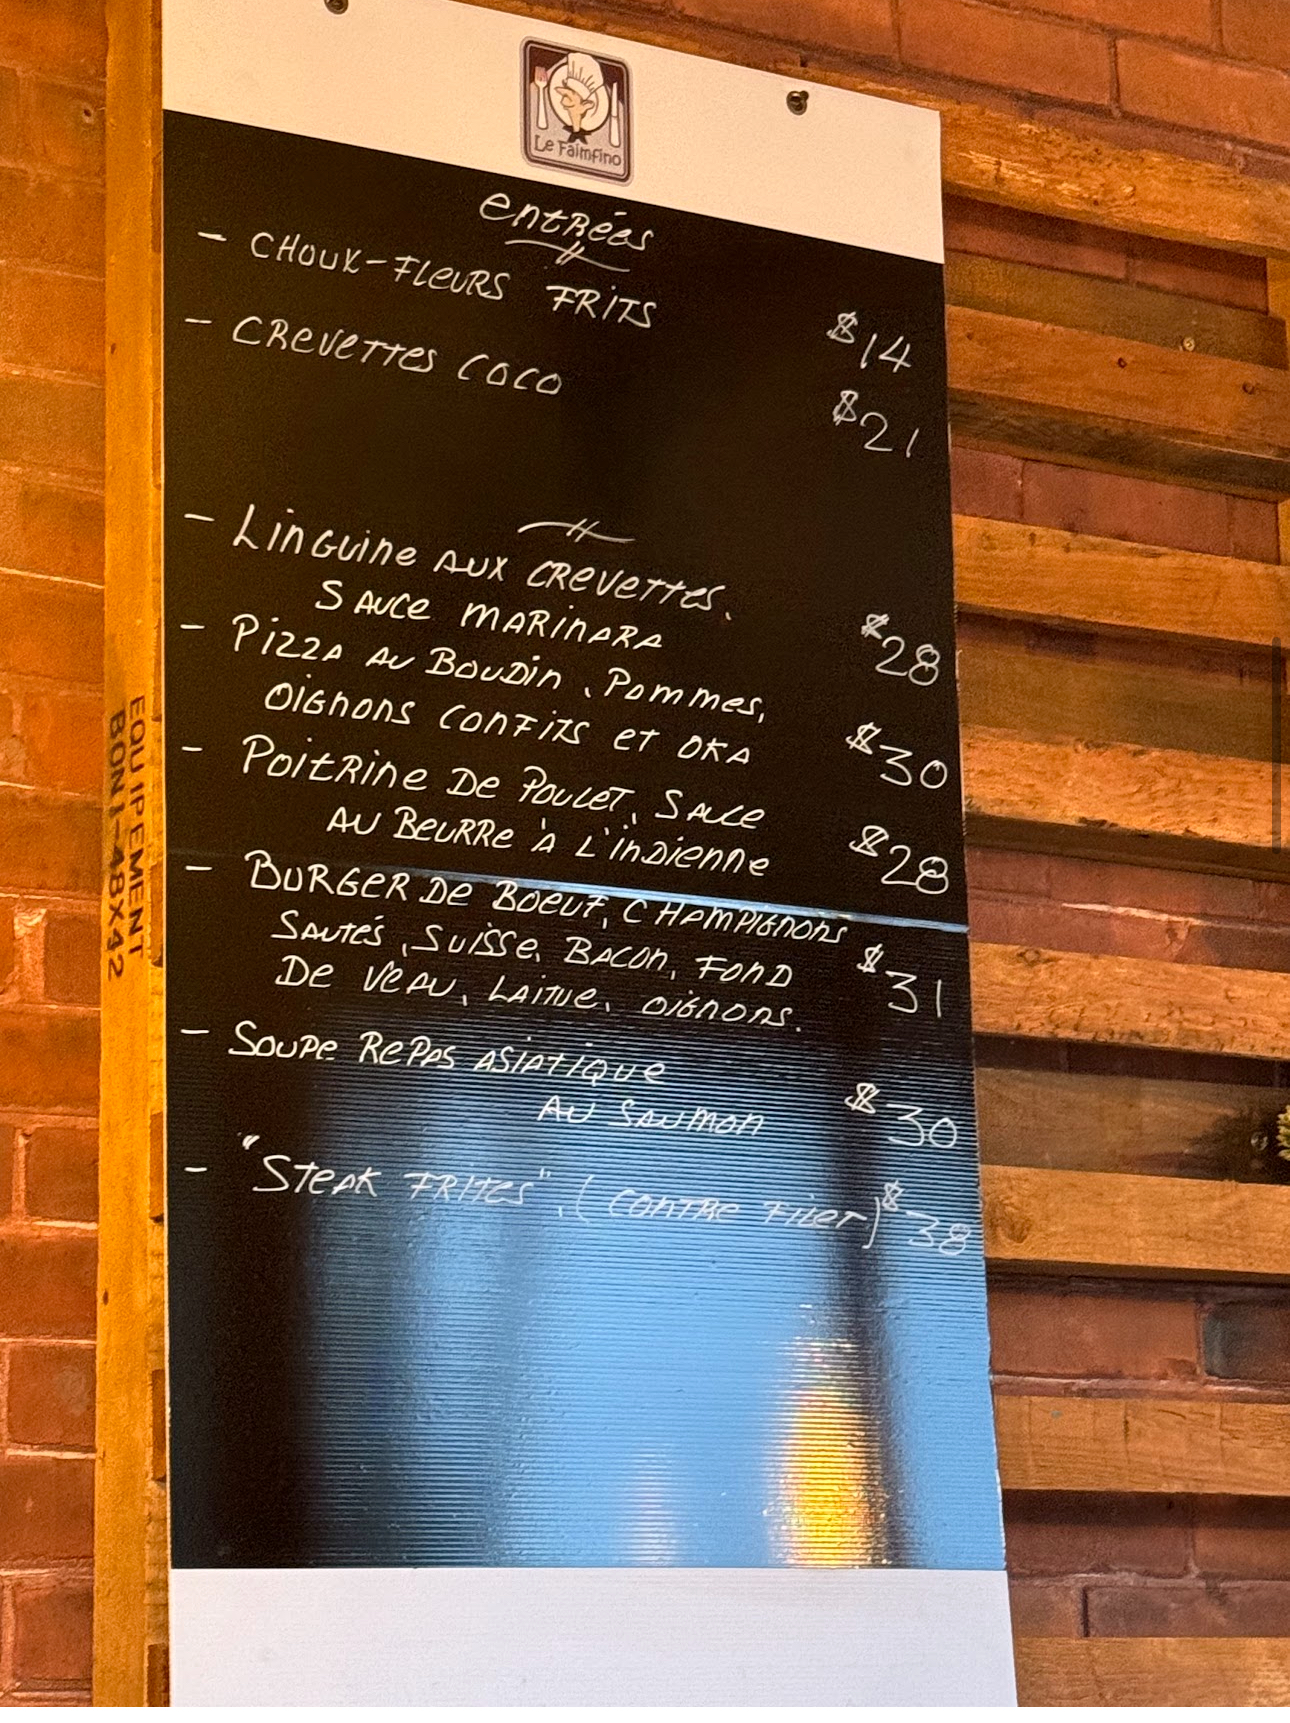 Le Faimfino
entRées
- CHOUX-FLeURS FRiTS $14
- CRevettes COCO $21
- LinGuine AUX CRevettes.
SAUCE MARinARA $28
- PizzA AU BOUDin, Pommes,
OiGnons ConFiTS et OKA $30
- PoitRine De PouLeT, SAUCe
AU BeURRe À L'inDienne $28
- BURGER De BOeUF, CHAMPiGnons
SAUTéS, SUiSSe, BACOn, FOnD $31
De VeAU, LAiTUe, OiGnOnS.
- SOUPe RePAS ASiATiQUe
AU SAUMOn $30
- "STeAK FRiTeS", (COnTRe FiLeT) $38
EQUIPEMENT
BONI-48X42